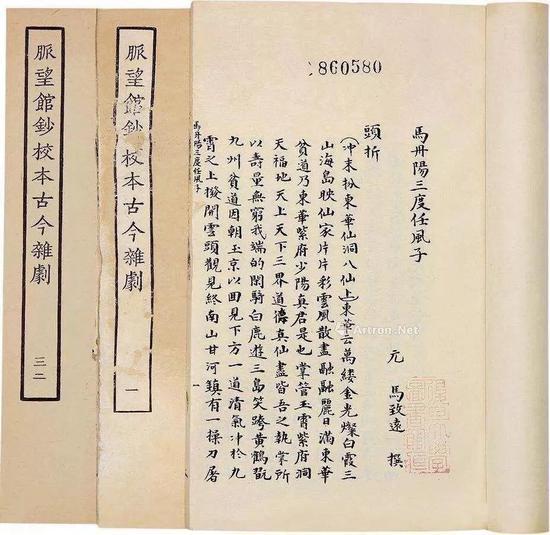 脈望館鈔校本古今雜劇
三二
脈望館鈔校本古今雜劇
一
860580
馬丹陽三度任風子
元 馬致遠 撰
頭折
（冲末扮東華仙洞八仙上）東華云萬縷金光燦白霞三
山海島映仙家片片彩雲風散盡融融麗日滿東華
貧道乃東華紫府少陽真君是也掌管玉霄紫府洞
天福地天上天下三界道德真仙盡皆吾之執掌所
以壽量無窮我端的閑騎白鹿遊三島笑跨黃鶴翫
九州貧道因朝玉京以回見下方一道清氣冲於九
霄之上撥開雲頭觀見終南山甘河鎮有一操刀屠
馬丹陽三度任風子
一
Artron.Net